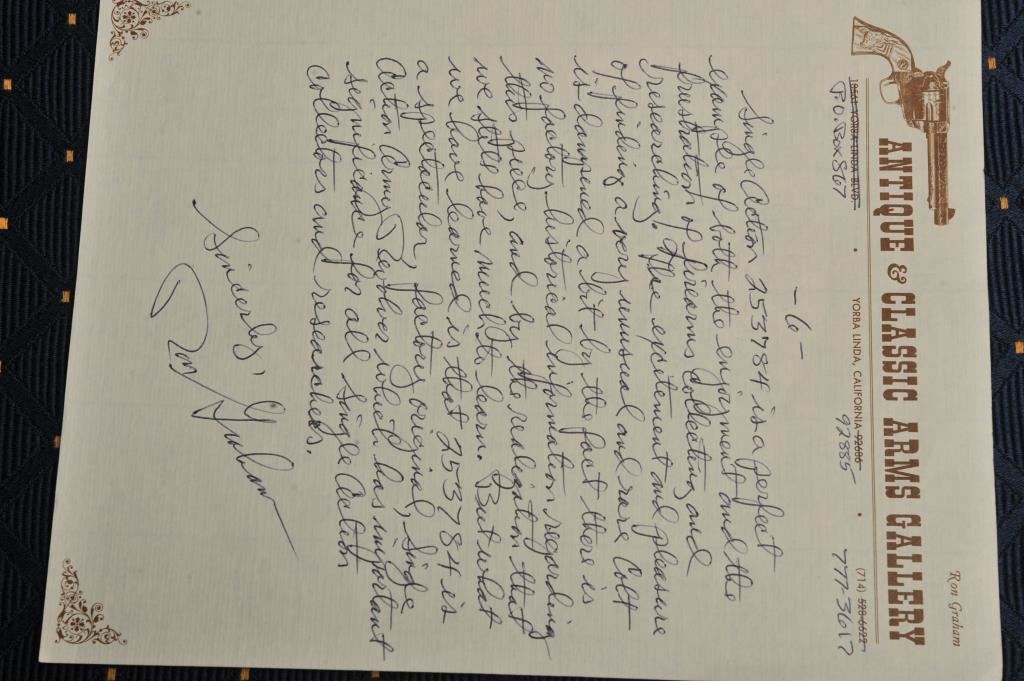 Ron Graham
ANTIQUE & CLASSIC ARMS GALLERY
18561 YORBA LINDA BLVD. • YORBA LINDA, CALIFORNIA 92686 • (714) 528-6622
P.O. Box 867 92885 777-3617
-6-
Single Action 253784 is a perfect
example of both the enjoyment and the
frustration of firearms collecting and
researching. The excitement and pleasure
of finding a very unusual and rare Colt
is dampened a bit by the fact there is
no factory historical information regarding
this piece, and by the realization that
we still have much to learn. But what
we have learned is that 253784 is
a spectacular, factory original, Single
Action Army Revolver which has important
significance for all Single Action
collectors and researchers.
Sincerely,
Ron Graham